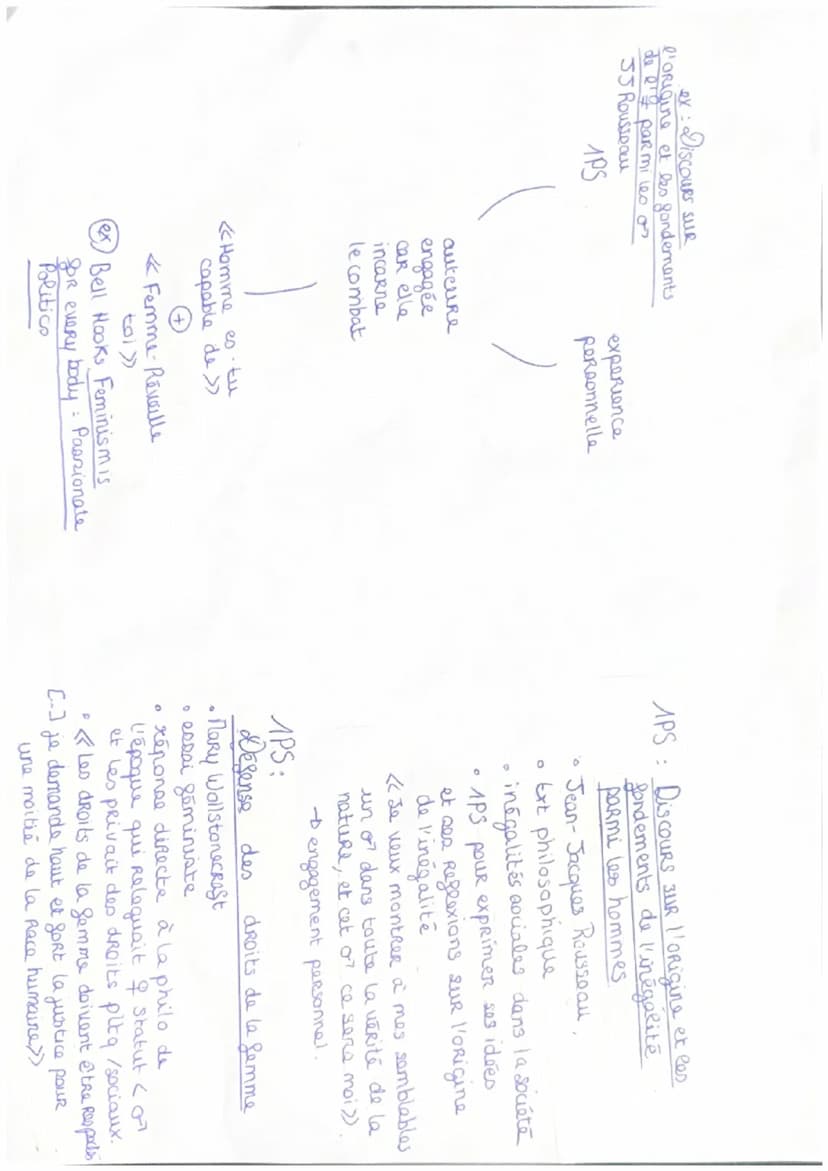 ex : Discours sur
l'origine et les fondements
de l'≠ parmi les ♂
JJ Rousseau
1PS
experience
personnelle
auteure
engagée
car elle
incarne
le combat
<<Homme es-tu
capable de >>
+
<< Femme-Réveille
toi >>
ex Bell Hooks Feminism is
for everybody : Passionate
Politics
1PS : Discours sur l'origine et les
fondements de l'inégalité
parmi les hommes
• Jean-Jacques Rousseau,
• txt philosophique
• inégalités sociales dans la société
• 1PS pour exprimer ses idées
et ses reflexions sur l'origine
de l'inégalité
<< Je veux montrer à mes semblables
un ♂ dans toute la vérité de la
nature, et cet ♂ ce sera moi >>.
→ engagement personnel.
1PS :
Défense des droits de la femme
• Mary Wollstonecraft
• essai féministe
• réponse directe à la philo de
l'époque qui releguait ♀ statut < ♂
et les privait des droits pltq /sociaux.
• << Les droits de la femme doivent être respectés
[...] je demande haut et fort la justice pour
une moitié de la race humaine >>